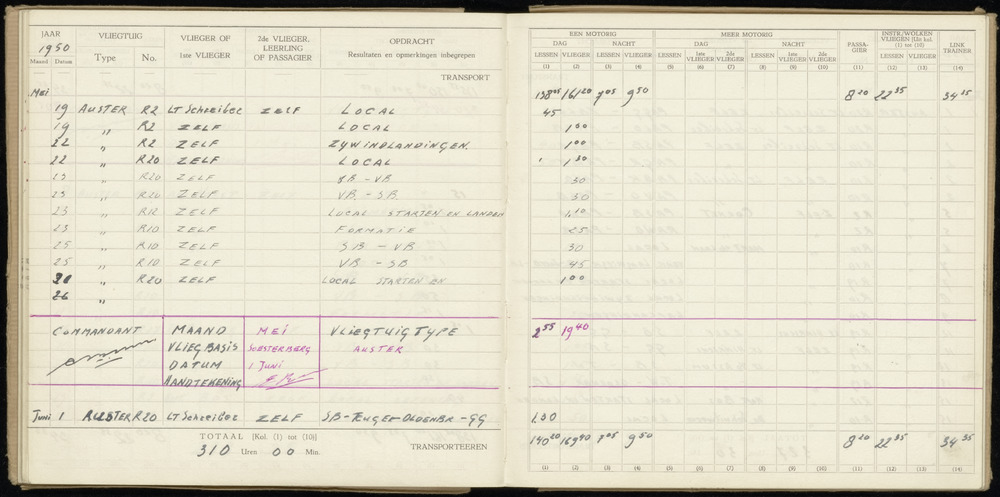 JAAR VLIEGTUIG VLIEGER OF 1ste VLIEGER 2de VLIEGER, LEERLING OF PASSAGIER OPDRACHT Resultaten en opmerkingen inbegrepen
1950
Maand Datum Type No.
EEN MOTORIG MEER MOTORIG PASSA-GIER INSTR./WOLKEN VLIEGEN [Uit kol. (1) tot (10)] LINK TRAINER
DAG NACHT DAG NACHT
LESSEN VLIEGER LESSEN VLIEGER LESSEN 1ste VLIEGER 2de VLIEGER LESSEN 1ste VLIEGER 2de VLIEGER LESSEN VLIEGER
(1) (2) (3) (4) (5) (6) (7) (8) (9) (10) (11) (12) (13) (14)
TRANSPORT
Mei 138 05 161 20 7 05 9 50 8 20 22 35 34 35
19 AUSTER R2 LT Schreiber ZELF LOCAL 45
19 " R2 ZELF LOCAL 1 00
22 " R2 ZELF ZYWINDLANDINGEN. 1 00
22 " R20 ZELF LOCAL 1 30
23 " R20 ZELF SB - VB 30
23 " R20 ZELF VB - SB. 30
23 " R12 ZELF LOCAL STARTEN EN LANDEN 1.10
23 " R10 ZELF FORMATIE 25
25 " R10 ZELF SB - VB 30
25 " R10 ZELF VB - SB 45
R20 ZELF LOCAL STARTEN EN 1 00
26 "
COMMANDANT MAAND MEI VLIEGTUIGTYPE 2 55 19 40
VLIEGBASIS SOESTERBERG AUSTER
DATUM 1 JUNI
HANDTEKENING
Juni 1 AUSTER R20 LT Schreiber ZELF SB-TEUGE-OLDENBR-GG 1.30
TOTAAL [Kol. (1) tot (10)] TRANSPORTEEREN 140 20 169 40 7 05 9 50 8 20 22 35 34 35
310 Uren 00 Min.
(1) (2) (3) (4) (5) (6) (7) (8) (9) (10) (11) (12) (13) (14)